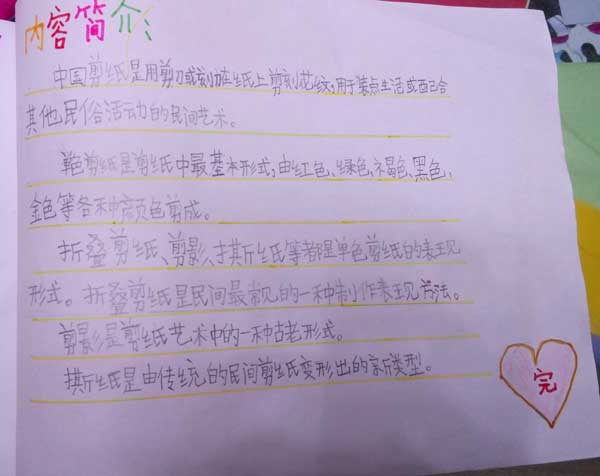 内容简介:
中国剪纸是用剪刀或刻刀在纸上剪刻花纹,用于装点生活或配合
其他民俗活动的民间艺术。
单色剪纸是剪纸中最基本形式,由红色、绿色、褐色、黑色、
金色等各种颜色剪成。
折叠剪纸、剪影、撕纸等都是单色剪纸的表现
形式。折叠剪纸是民间最常见的一种制作表现方法。
剪影是剪纸艺术中的一种古老形式。
撕纸是由传统的民间剪纸变形出的新类型。
完